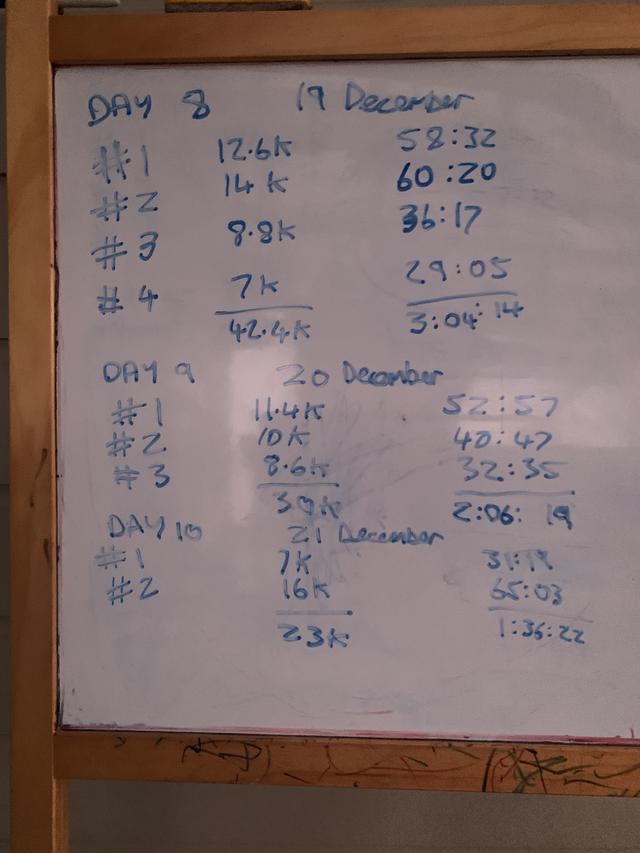 DAY 8 19 December
#1 12.6K 58:32
#2 14K 60:20
#3 8.8K 36:17
#4 7K 29:05
42.4K 3:04:14
DAY 9 20 December
#1 11.4K 52:57
#2 10K 40:47
#3 8.6K 32:35
30K 2:06:19
DAY 10 21 December
#1 7K 31:19
#2 16K 65:03
23K 1:36:22